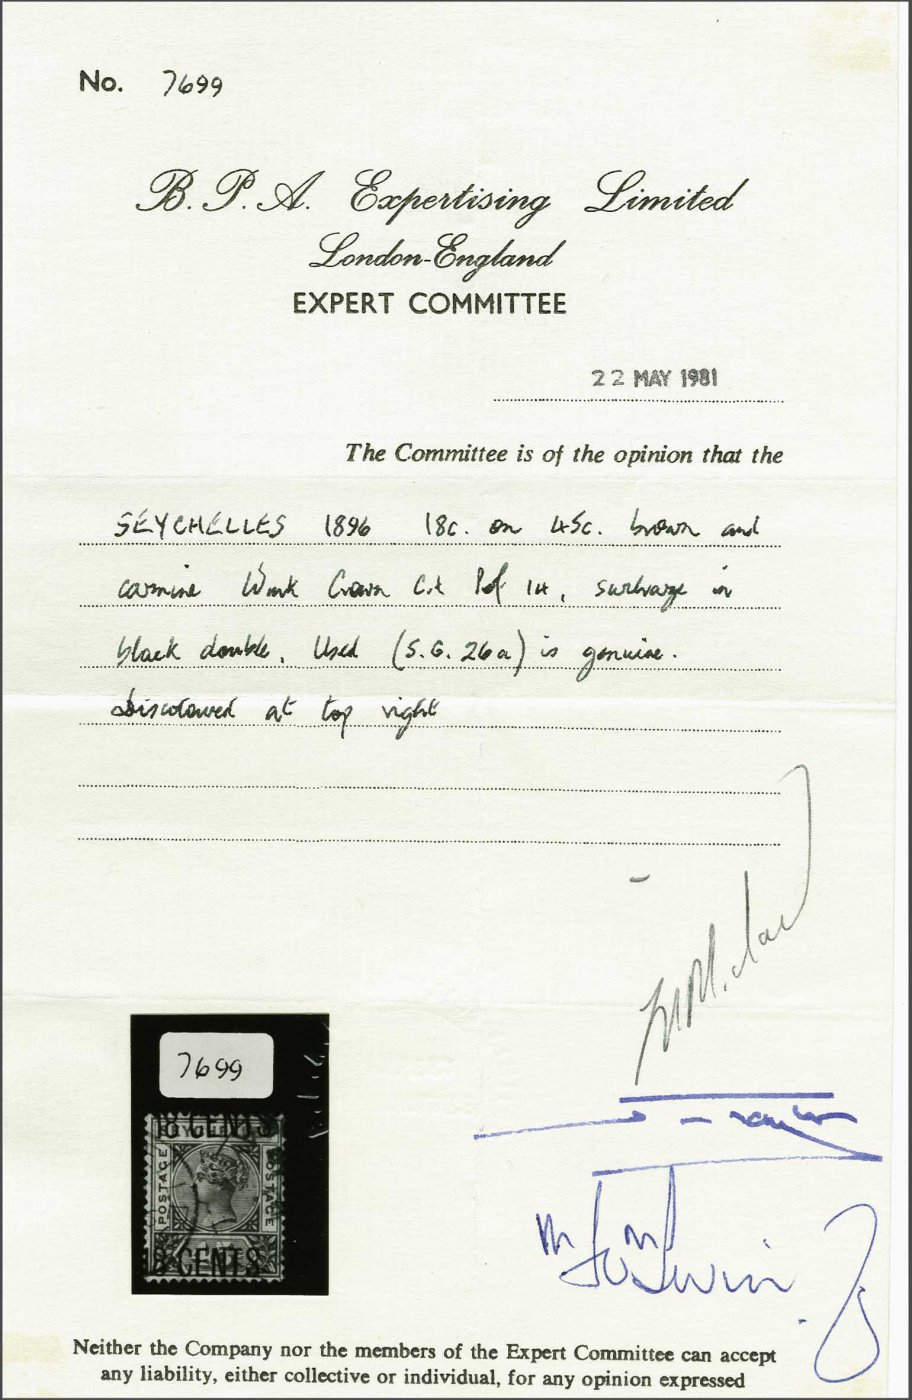 No. 7699
B. P. A. Expertising Limited
London-England
EXPERT COMMITTEE
22 MAY 1981
The Committee is of the opinion that the
SEYCHELLES 1896 18c. on 45c. brown and
carmine Wmk Crown CA Perf 14, surcharge in
black double, Used (S.G. 26a) is genuine.
Discoloured at top right
7699
18 CENTS
POSTAGE
POSTAGE
18 CENTS
Neither the Company nor the members of the Expert Committee can accept
any liability, either collective or individual, for any opinion expressed